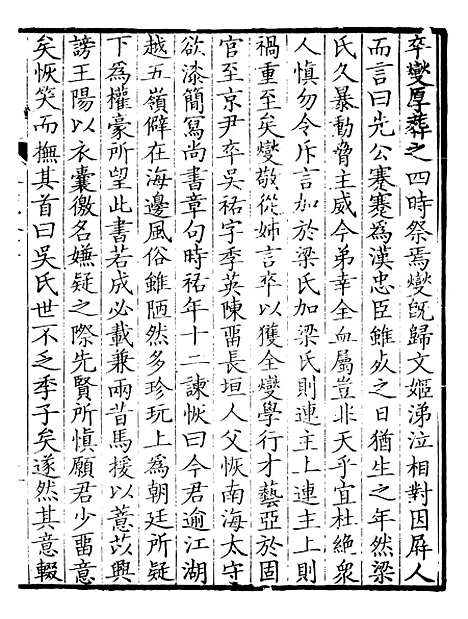 卒燮厚葬之四時祭焉燮旣歸文姬涕泣相對因屛人
而言曰先公蹇蹇爲漢忠臣雖死之日猶生之年然梁
氏久暴動脅主威今弟幸全血屬豈非天乎宜杜絶衆
人愼勿令斥言加於梁氏加梁氏則連主上連主上則
禍重至矣燮敬從姊言卒以獲全燮學行才藝亞於固
官至京尹卒吳祐字季英陳畱長垣人父恢南海太守
欲漆簡寫尚書章句時祐年十二諫恢曰今君逾江湖
越五嶺僻在海邊風俗雖陋然多珍玩上爲朝廷所疑
下爲權豪所望此書若成必載兼兩昔馬援以薏苡興
謗王陽以衣囊徼名嫌疑之際先賢所愼願君少畱意
矣恢笑而撫其首曰吳氏世不乏季子矣遂然其意輟